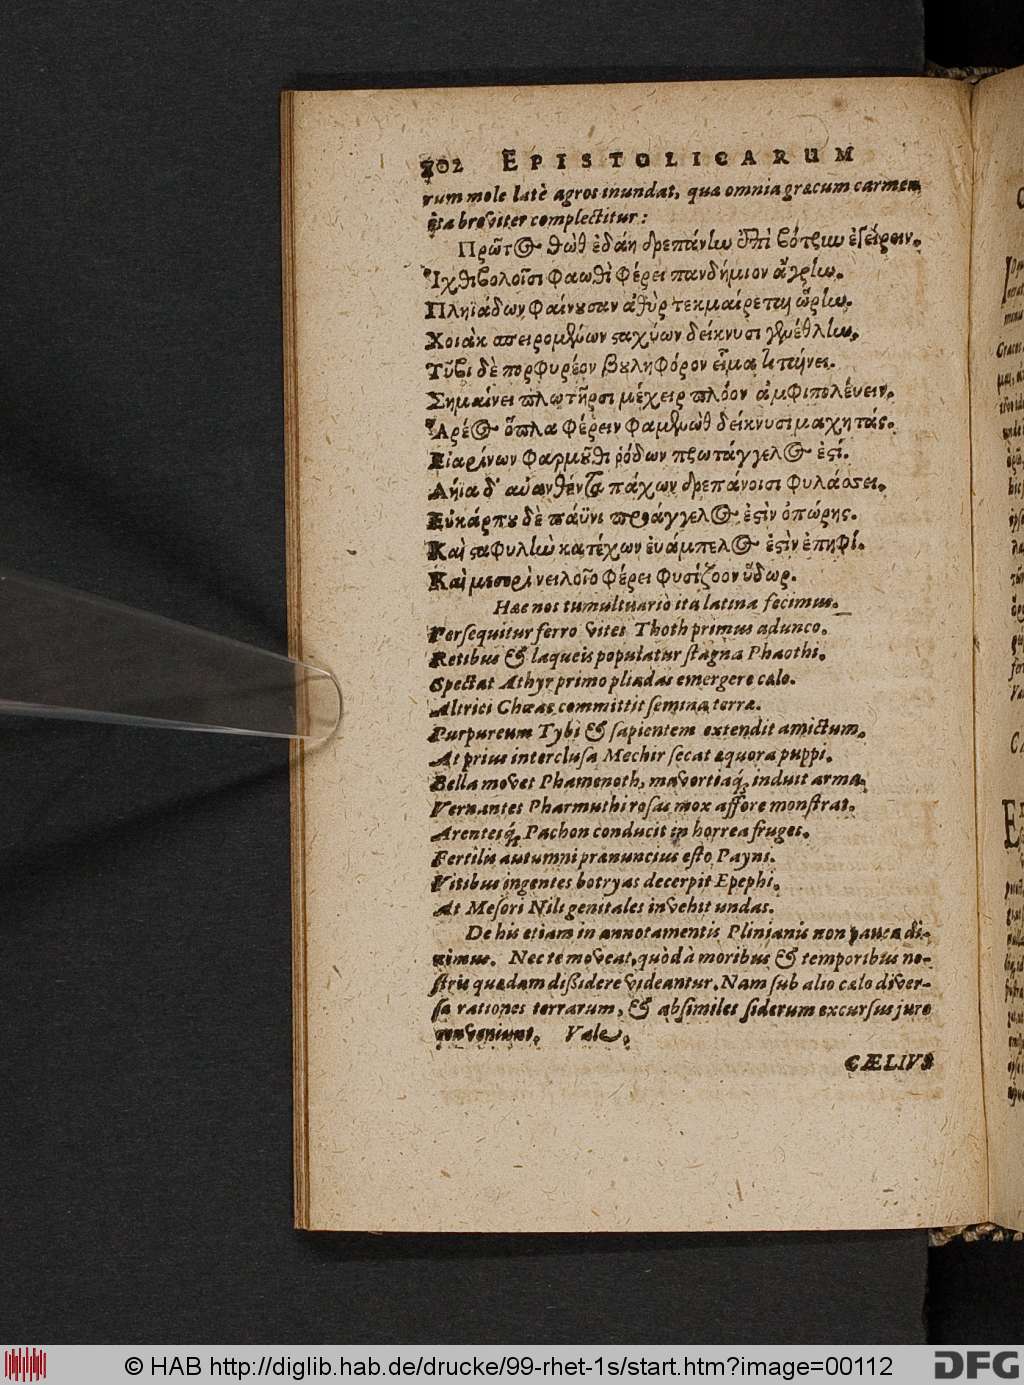 102 EPISTOLICARUM
rum mole latè agros inundat, qua omnia græcum carmen
ita breviter complectitur:
Πρῶτος θὼθ ἐδάη δρεπάνίω ἐπὶ βότρυν ἐγείρειν.
Ἰχθυβολοῖσι φαωθὶ φέρει πανδήμιον ἄγρίω.
Πληϊάδων φαίνουσαν ἀθὺρ τεκμαίρεται ὥρίω.
Χοιὰκ σπειρομένων σαχύων δείκνυσι γενέθλίω.
Τῦβι δὲ πορφυρέον βουληφόρον εἷμα τιταίνει.
Σημαίνει πλωτῆρσι μέχειρ πλόον ἀμφιπολέυειν.
Ἄρεος ὅπλα φέρειν φαμενὼθ δείκνυσι μαχητάς.
Εἰαρίνων φαρμοῦθι ῥόδων πρωτάγγελος ἐστί.
Λήϊα δ' αὐανθέντα πάχων δρεπάνοισι φυλάσσει.
Εὐκάρπου δὲ παϋνι προάγγελος ἐστὶν ὀπώρης.
Καὶ σαφυλίω κατέχων ἐυάμπελος ἐστὶν ἐπηφί.
Καὶ μεσορὶ νειλοῖο φέρει φυσίζοον ὕδωρ.
Hæc nos tumultuariò ita latina fecimus.
Persequitur ferro vites Thoth primus adunco.
Retibus & laqueis populatur stagna Phaothi.
Spectat Athyr primo pliadas emergere cælo.
Altrici Choeac committit semina terræ.
Purpureum Tybi & sapientem extendit amictum.
At prius interclusa Mechir secat æquora puppi.
Bella movet Phamenoth, mavortiaq́; induit arma.
Vernantes Pharmuthi rosas mox affore monstrat.
Arentesq́; Pachon conducit in horrea fruges.
Fertilis autumni prænuncius esto Payni.
Vitibus ingentes botryas decerpit Epephi.
At Mesori Nili genitales invehit undas.
De his etiam in annotamentis Plinianis non pauca di-
ximus. Nec te moveat, quòd à moribus & temporibus no-
stris quædam dißidere videantur. Nam sub alio cælo diver-
sæ rationes terrarum, & absimiles siderum excursus jure
conveniunt. Vale.
CÆLIUS
© HAB http://diglib.hab.de/drucke/99-rhet-1s/start.htm?image=00112
DFG